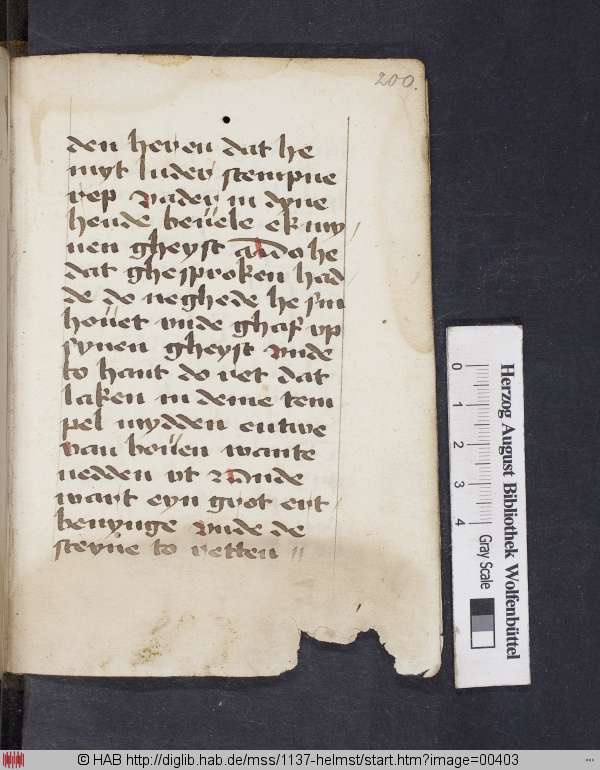 200.
den heren dat he
myt luder stempne
rep Vader in dyne
hende beuele ek my
nen gheyst Also he
dat ghesproken had
de do neghede he sin
houet vnde ghaf vp
synen gheyst Vnde
to hant do ret dat
laken in deme tem
pel mydden entwe
van bouen wante
nedden vt Vnde
wart eyn grot ert
beuynge Vnde de
steyne to retten //
0
1
2
3
4
Herzog August Bibliothek Wolfenbüttel
Gray Scale
© HAB http://diglib.hab.de/mss/1137-helmst/start.htm?image=00403